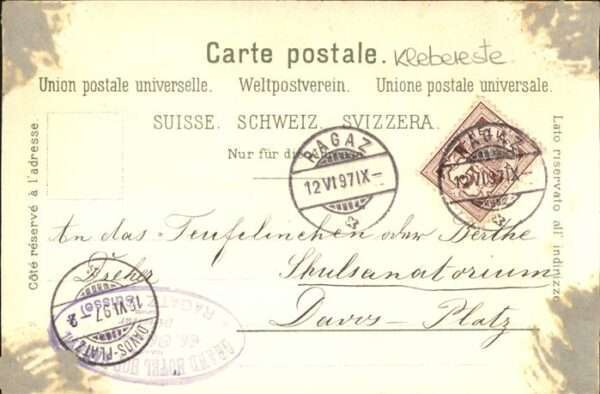 Carte postale. Klebereste.
Union postale universelle. Weltpostverein. Unione postale universale.
SUISSE. SCHWEIZ. SVIZZERA.
Nur für die
RAGAZ
12 VI 97 IX-
RAGAZ
12 VI 97 IX
Côté réservé à l'adresse.
Lato riservato all' indirizzo
An das Teufelinchen oder Berthe
Dreher Shulsanatorium
Davos-Platz
12 VI 97
DAVOS-PLATZ
GRAND HOTEL HOF
RAGATZ
(SUISSE)